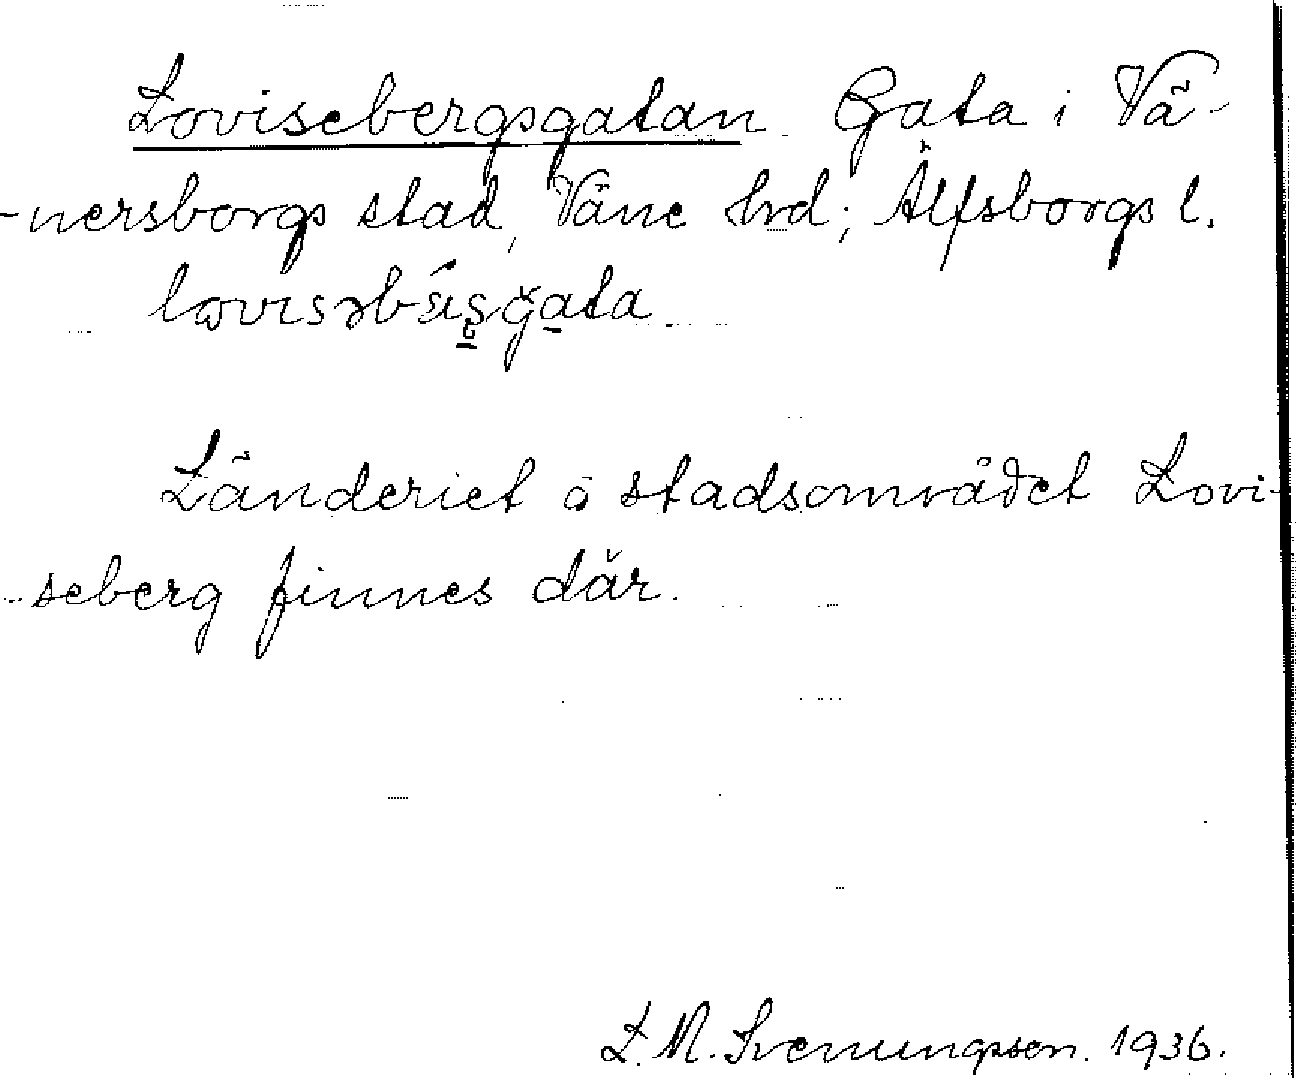 Lovisebergsgatan Gata i Vä-
-nersborgs stad, Väne hrd; Älfsborgs l.
Länderiet o stadsområdet Lovi-
-seberg finnes där.
L. M. Svenungsson. 1936.